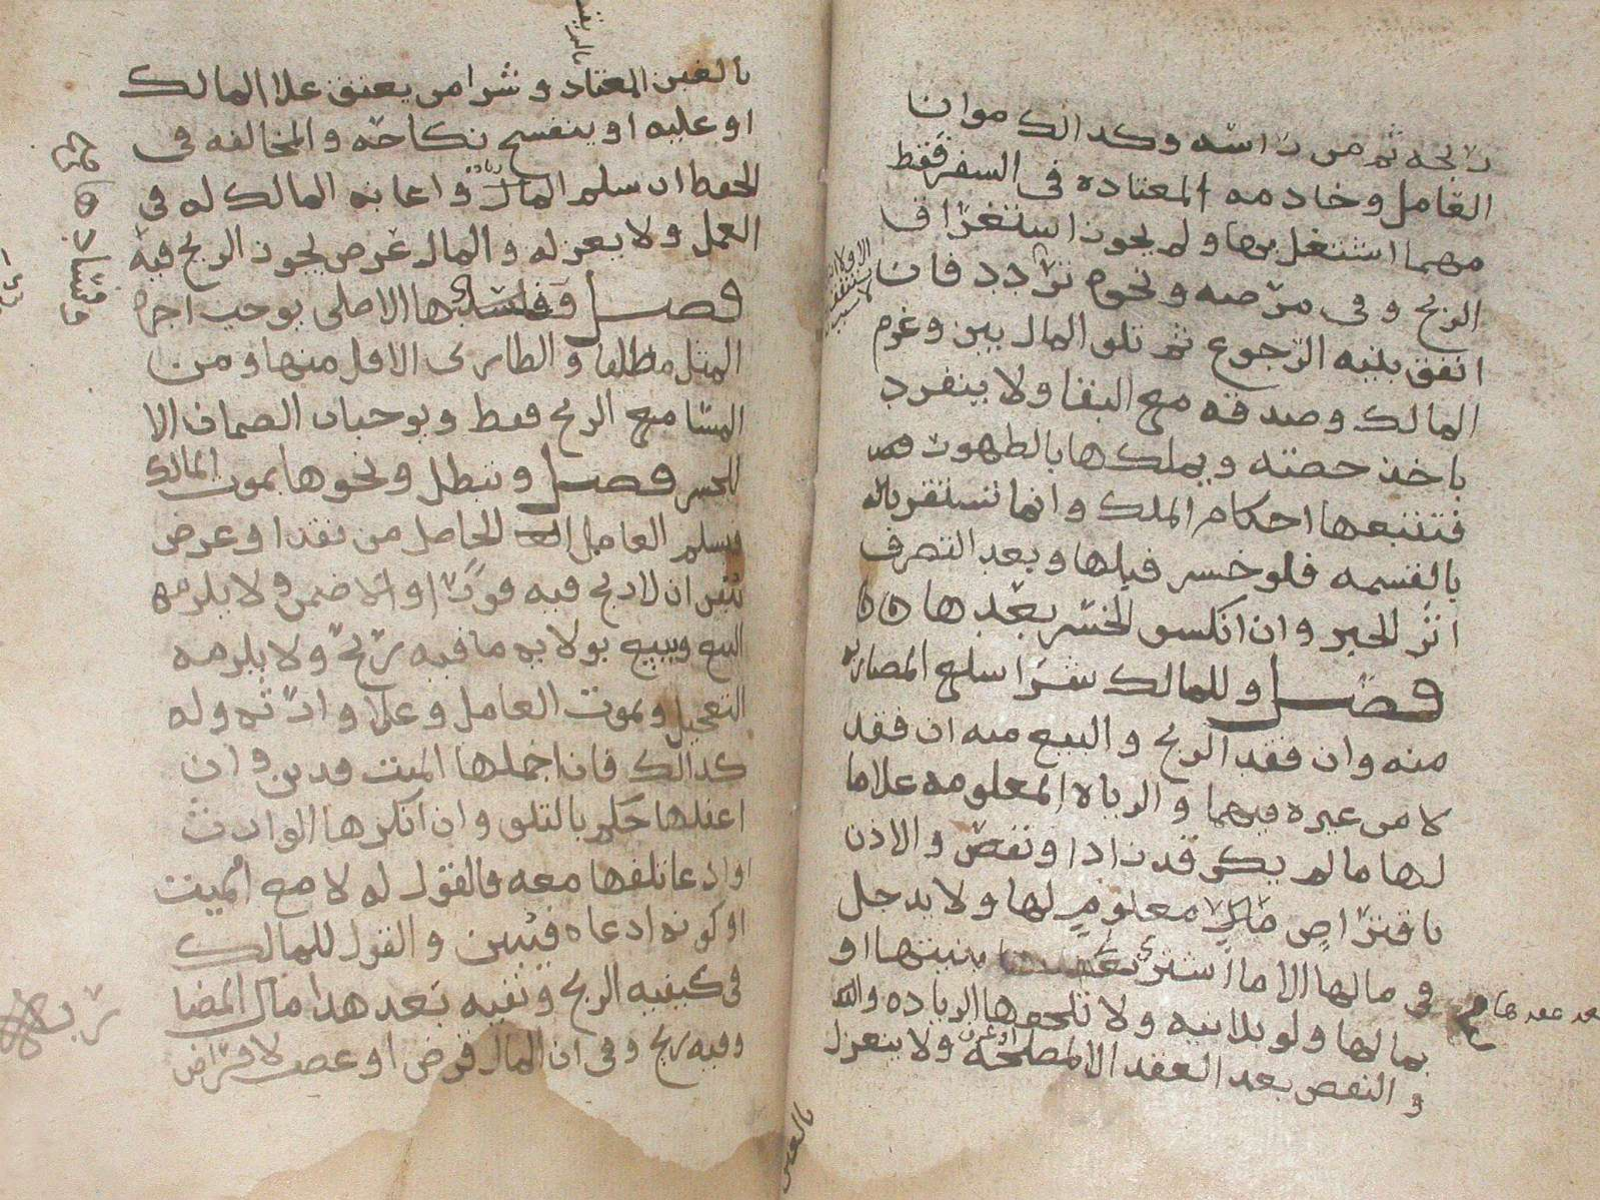 ربحه ثم من راسه وكذالك موان
العامل وخادمه المعتاده في السفر فقط
مهما اشتغل بها ولم يجوز استغراق
الربح وفي مرضه ونحوه تردد فان
انفق بنيه الرجوع ثم تلف المال بين وغرم
المالك وصدقه مع البقا ولا ينفرد
باخذ حصته ويملكها بالظهور
فتتبعها احكام الملك وانما تستقر
بالقسمه فلو خسر قبلها وبعد التصرف
اثر الجبر وان انكشف الخسر بعدها
فصل وللمالك شرا سلع المضاربه
منه وان فقد الربح والبيع منه ان فقد
لا من غيره فيهما والزياده المعلومه علا ما
لها ما لم يكن قد زاد او نقص والاذن
باقتراض مال معلوم لها ولا يدخل
في مالها الا ما اشتري بعد بنيتها او
بمالها ولو بلا نيه ولا تلحقها الزياده
و النقص بعد العقد الا لمصلحة ولا ينعزل
بالغبن المعتاد وشرا من يعتق علا المالك
او عليه او ينفسخ نكاحه والمخالفه في
الحفظ ان سلم المال واعانه المالك له في
العمل ولا بعزله والمال عرض يجوز الربح فيه
فصل وفسادها الاصلي يوجب اجره
المثل مطلقا والطاري الاقل منها ومن
المسما مع الربح فقط ويوجبان الضمان الا
للخسر فصل وتبطل ونحوها بموت المالك
فيسلم العامل الحاصل من نقد او عرض
تيقن ان لا ربح فيه فورًا والا ضمن ولا يلزمه
البيع ويبيع بولايه ما فيه ربح ولا يلزمه
التعجيل وبموت العامل وعلا وارثه وله
كذالك فان اجملها الميت فدين وان
اغفلها حكم بالتلف وان انكرها الوارث
او ادعا تلفها معه فالقول له لا مع الميت
او كونه ادعاه فيبين والقول للمالك
في كيفيه الربح ونفيه بعد هذا مال المضا
وفيه ربح وفي ان المال قرض او غصب لا قراض